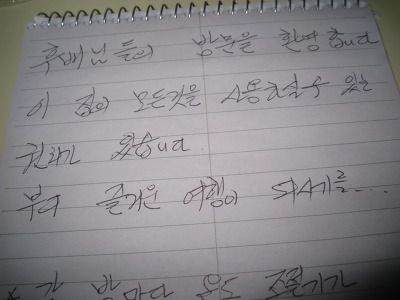 후배님들의 방문을 환영합니다
이 집의 모든것을 사용하실수 있는
권리가 있습니다.
부디 즐거운 여행이 되시기를...
* 각 방마다 온도 조절기가